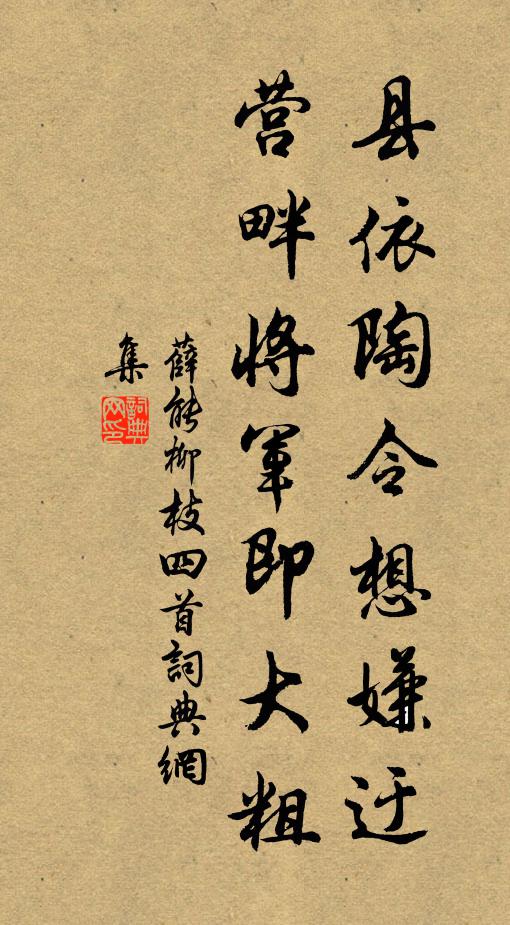 县依陶令想嫌迂
营畔将军即大粗
薛能柳枝四首詞典網
集
詞典
网印